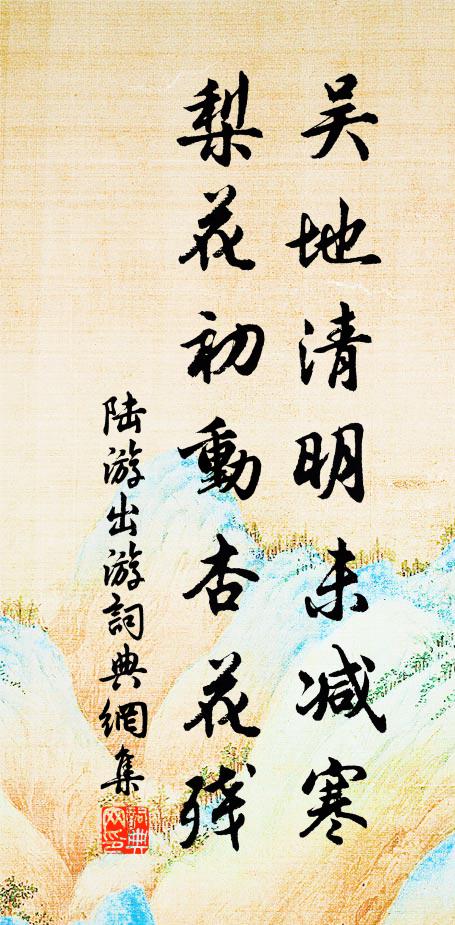 吴地清明未减寒
梨花初動杏花残
陆游出游詞典網集
詞典
网印